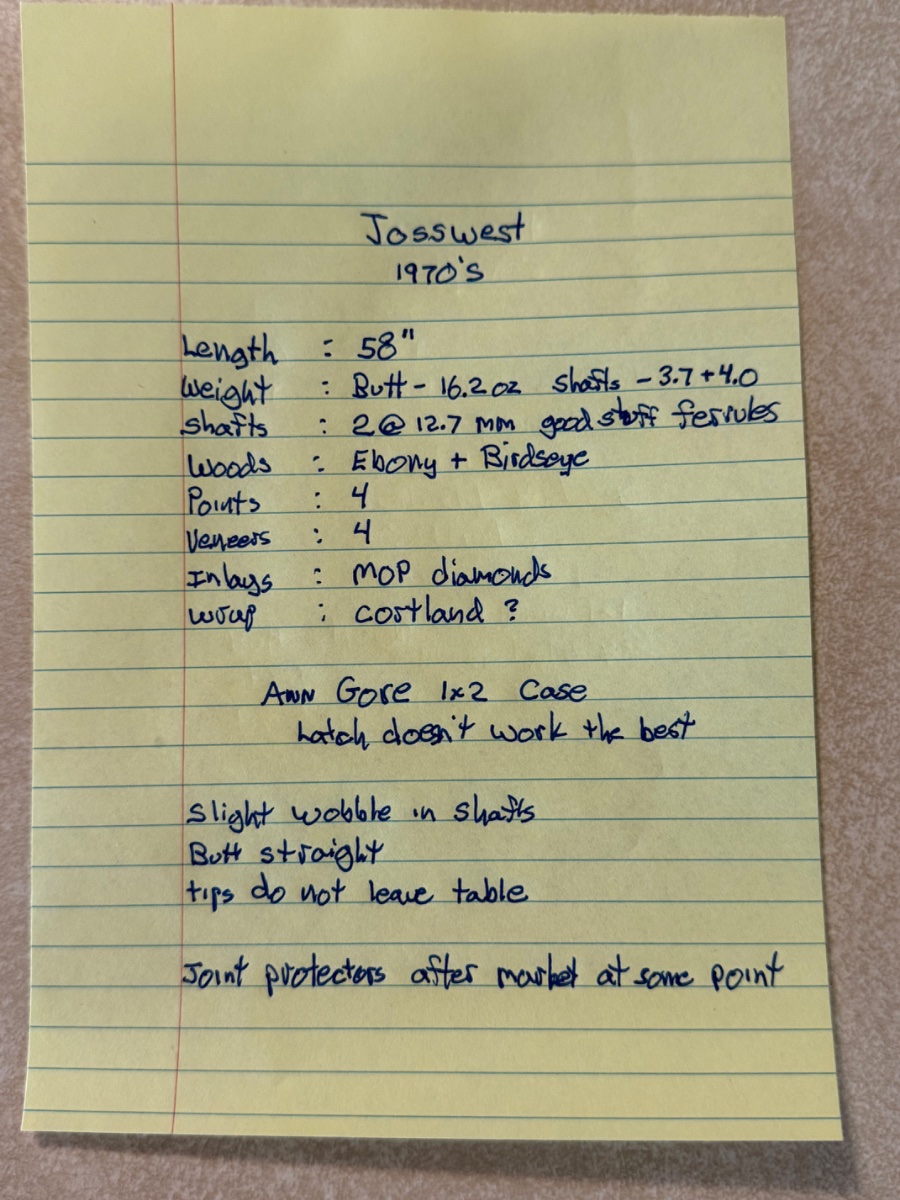 Josswest
1970's
Length : 58"
Weight : Butt - 16.2 oz shafts - 3.7 + 4.0
Shafts : 2 @ 12.7 mm good stuff ferrules
Woods : Ebony + Birdseye
Points : 4
Veneers : 4
Inlays : MOP diamonds
Wrap : Cortland ?
Ann Gore 1x2 Case
Latch doesn't work the best
Slight wobble in shafts
Butt straight
tips do not leave table
Joint protectors after market at some point